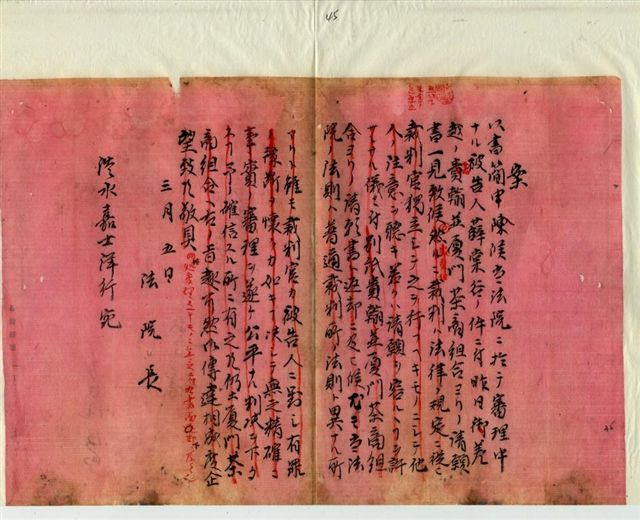 45
案
以書簡申陳候当法院ニ於テ審理中
ナル被告人薛棠谷ノ件ニ付昨日御差
越ノ貴翰並厦門茶商組合ヨリノ請願
書一見致候然ルニ裁判ハ法律ノ規定ニ従ヒ
裁判官独立シテ之ヲ行フヘキモノニシテ他
人ノ注意ヲ聴キ若クハ請願ヲ容ルヽヲ許
サヽル儀ニ付別紙貴翰並厦門茶商組
合ヨリノ請願書ハ返却ニ及ヒ候尤モ当法
院ノ法則ハ普通裁判所ノ法則ト異ナル所
アリト雖モ裁判官カ被告人ニ対シ有罪
ノ予断ヲ懐クカ如キハ決シテ無之精確ニ
事実ノ審理ヲ遂ケ公平ナル判決ヲ下ス
ヘキハ予ノ確信スル所ニ有之候仍テ厦門茶
商組合ヘ右ノ旨趣可然御傳達相成度企
望致候敬具
三月五日
法院長
洪永嘉士洋行宛